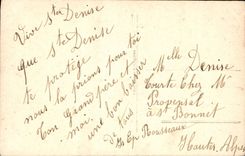 Vive Ste Denise
que Ste Denise
te protège
nous la prions pour toi
Ton Grand père et
moi. une bon baisser
de tous
Ep Rousseaux
Melle Denise
Courte Chez Mr
Propensal
à St Bonnet
Hautes Alpes